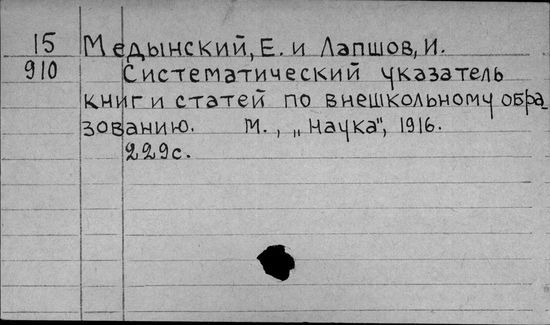 15 Медынский, Е. и Лапшов, И.
910 Систематический указатель
книг и статей по внешкольному обра-
зованию. М., „Наука", 1916.
229с.